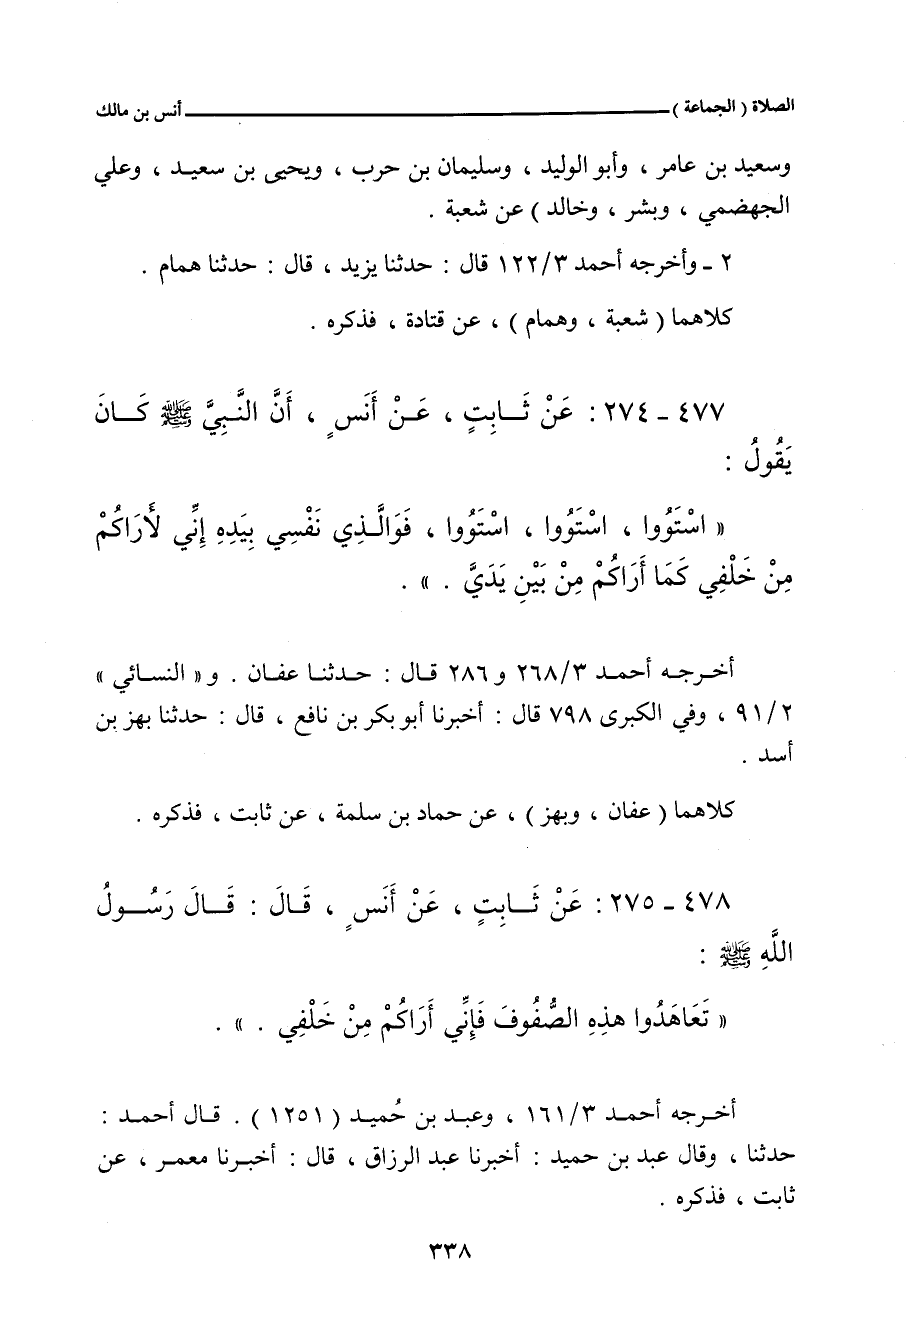 الصلاة ( الجماعة ) ــــــــــ أنس بن مالك
وسعيد بن عامر ، وأبو الوليد ، وسليمان بن حرب ، ويحيى بن سعيد ، وعلي
الجهضمي ، وبشر ، وخالد ) عن شعبة .
٢ - وأخرجه أحمد ١٢٢/٣ قال : حدثنا يزيد ، قال : حدثنا همام .
كلاهما ( شعبة ، وهمام ) ، عن قتادة ، فذكره .
٤٧٧ - ٢٧٤ : عَنْ ثَـابِتٍ ، عَـنْ أَنَسٍ ، أَنَّ النَّـبِيَّ ﷺ كَـانَ
يَقُولُ :
« اسْتَوُوا ، اسْتَوُوا ، اسْتَوُوا ، فَوَالَّـذِي نَفْسِي بِيَدِهِ إِنِّي لَأَرَاكُمْ
مِنْ خَلْفِي كَمَا أَرَاكُمْ مِنْ بَيْنِ يَدَيَّ . » .
أخـرجـه أحمـد ٢٦٨/٣ و ٢٨٦ قـال : حـدثنـا عفـان . و« النسـائي »
٩١/٢ ، وفي الكبرى ٧٩٨ قال : أخبرنا أبو بكر بن نافع ، قال : حدثنا بهز بن
أسد .
كلاهما ( عفان ، وبهز ) ، عن حماد بن سلمة ، عن ثابت ، فذكره .
٤٧٨ - ٢٧٥ : عَنْ ثَـابِتٍ ، عَنْ أَنَسٍ ، قَالَ : قَـالَ رَسُـولُ
اللَّهِ ﷺ :
« تَعَاهَدُوا هذِهِ الصُّفُوفَ فَإِنِّي أَرَاكُمْ مِنْ خَلْفِي . » .
أخـرجه أحمـد ١٦١/٣ ، وعبـد بن حُميـد ( ١٢٥١ ) . قـال أحمـد :
حدثنا ، وقال عبد بن حميد : أخبرنا عبد الرزاق ، قال : أخبـرنا معمـر ، عن
ثابت ، فذكره .
٣٣٨